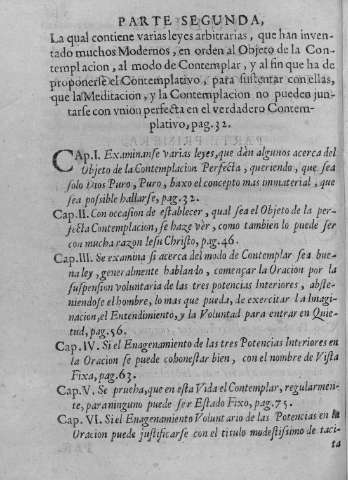 PARTE SEGUNDA,
La qual contiene varias leyes arbitrarias, que han inven-
tado muchos Modernos, en orden al Objeto de la Con-
templacion, al modo de Contemplar, y al fin que ha de
proponerse el Contemplativo, para sustentar con ellas,
que la Meditacion, y la Contemplacion no pueden jun-
tarse con vnion perfecta en el verdadero Contem-
plativo, pag. 32.
CAp. I. Examinanse varias leyes, que dàn algunos acerca del
Objeto de la Contemplacion Perfecta, queriendo, que sea
solo Dios Puro, Puro, baxo el concepto mas immaterial, que
sea possible hallarse, pag. 32.
Cap. II. Con occasion de establecer, qual sea el Objeto de la per-
fecta Contemplacion, se haze vèr, como tambien lo puede ser
con mucha razon Iesu Christo, pag. 46.
Cap. III. Se examina si acerca del modo de Contemplar sea bue-
na ley, generalmente hablando, començar la Oracion por la
suspension voluntaria de las tres potencias Interiores, abste-
niendose el hombre, lo mas que pueda, de exercitar la Imagi-
nacion, el Entendimiento, y la Voluntad para entrar en Quie-
tud, pag. 56.
Cap. IV. Si el Enagenamiento de las tres Potencias Interiores en
la Oracion se puede cohonestar bien, con el nombre de Vista
Fixa, pag. 63.
Cap. V. Se prueba, que en esta Vida el Contemplar, regularmen-
te, para ninguno puede ser Estado Fixo, pag. 75.
Cap. VI. Si el Enagenamiento Voluntario de las Potencias en la
Oracion puede justificarse con el titulo modestissimo de taci-
ta